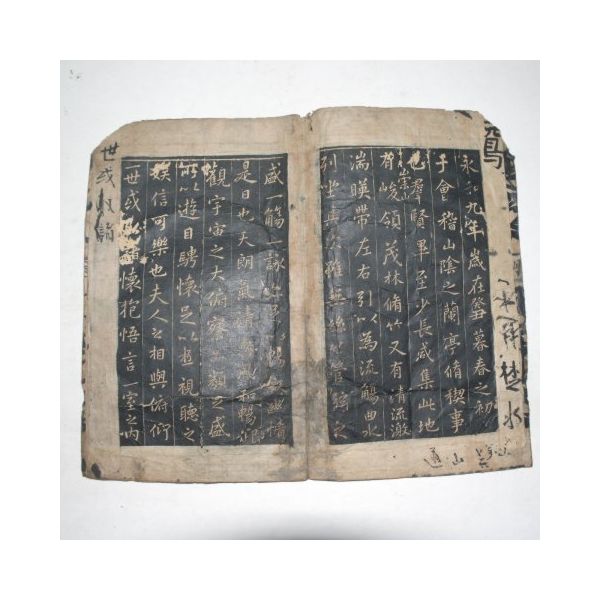 永和九年歲在癸丑暮春之初
于會稽山陰之蘭亭脩稧事
也羣賢畢至少長咸集此地
有崇山峻領茂林脩竹又有清流激
湍暎帶左右引以為流觴曲水
列坐其次雖無絲竹管弦之
盛一觴一詠亦足以暢叙幽情
是日也天朗氣清惠風和暢仰
觀宇宙之大俯察品類之盛
所以遊目騁懷足以極視聽之
娛信可樂也夫人之相與俯仰
一世或取諸懷抱悟言一室之內
世或
山
水